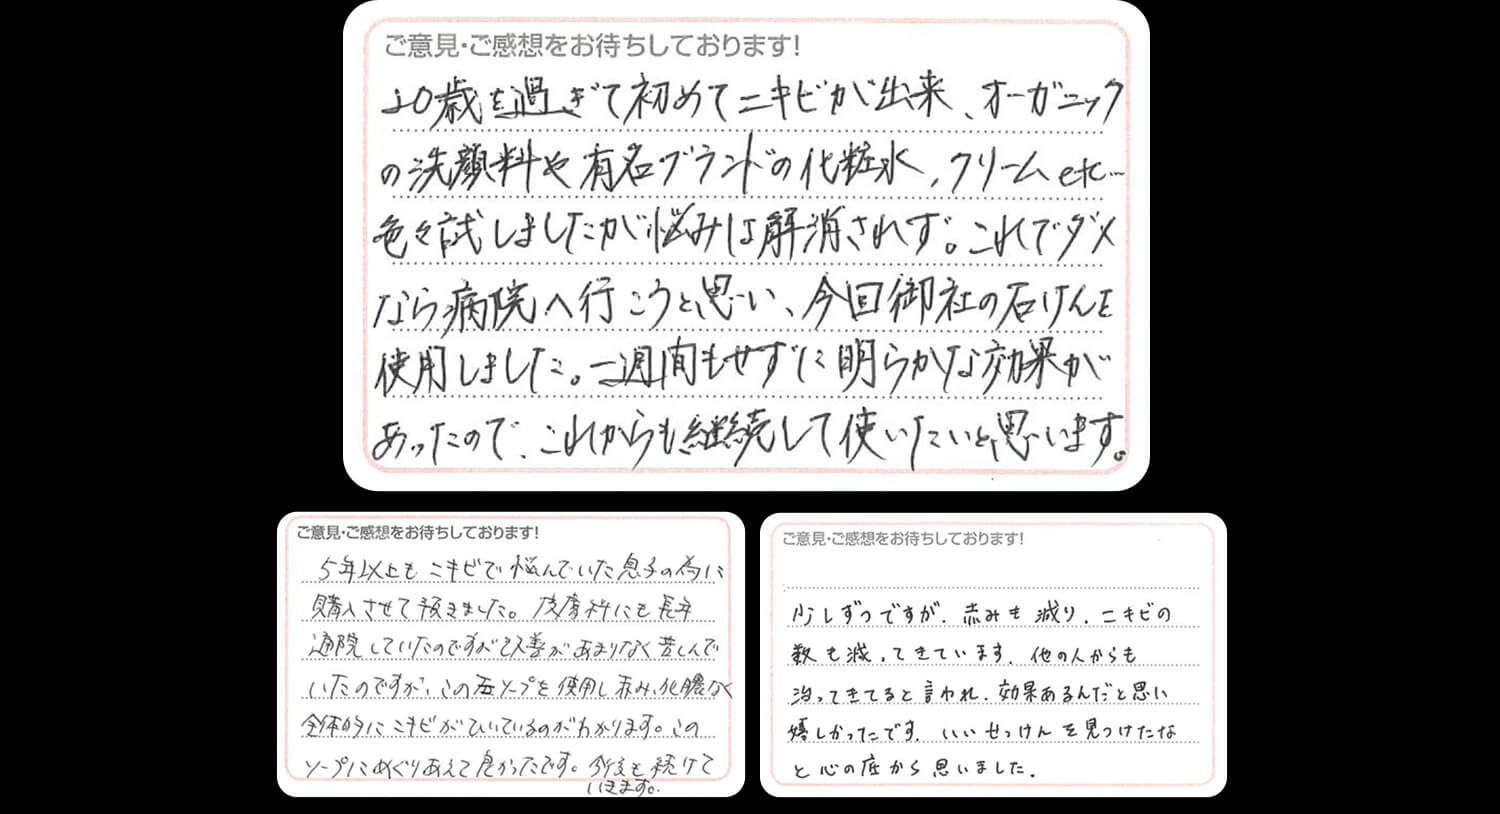 ご意見・ご感想をお待ちしております!
20歳を過ぎて初めてニキビが出来、オーガニック
の洗顔料や有名ブランドの化粧水、クリームetc…
色々試しましたが悩みは解消されず。これでダメ
なら病院へ行こうと思い、今回御社の石けんを
使用しました。一週間もせずに明らかな効果が
あったので、これからも継続して使いたいと思います。
ご意見・ご感想をお待ちしております!
5年以上もニキビで悩んでいた息子の為に
購入させて頂きました。皮膚科にも長年
通院していたのですが改善があまりなく苦しんで
いたのですが、この石ソープを使用し赤み、化膿なく
全体的にニキビがひいているのがわかります。この
ソープにめぐりあえて良かったです。今後も続けて
いきます。
ご意見・ご感想をお待ちしております!
少しずつですが、赤みも減り、ニキビの
数も減ってきています。他の人からも
治ってきてると言われ、効果あるんだと思い
嬉しかったです。いいせっけんを見つけたな
と心の底から思いました。